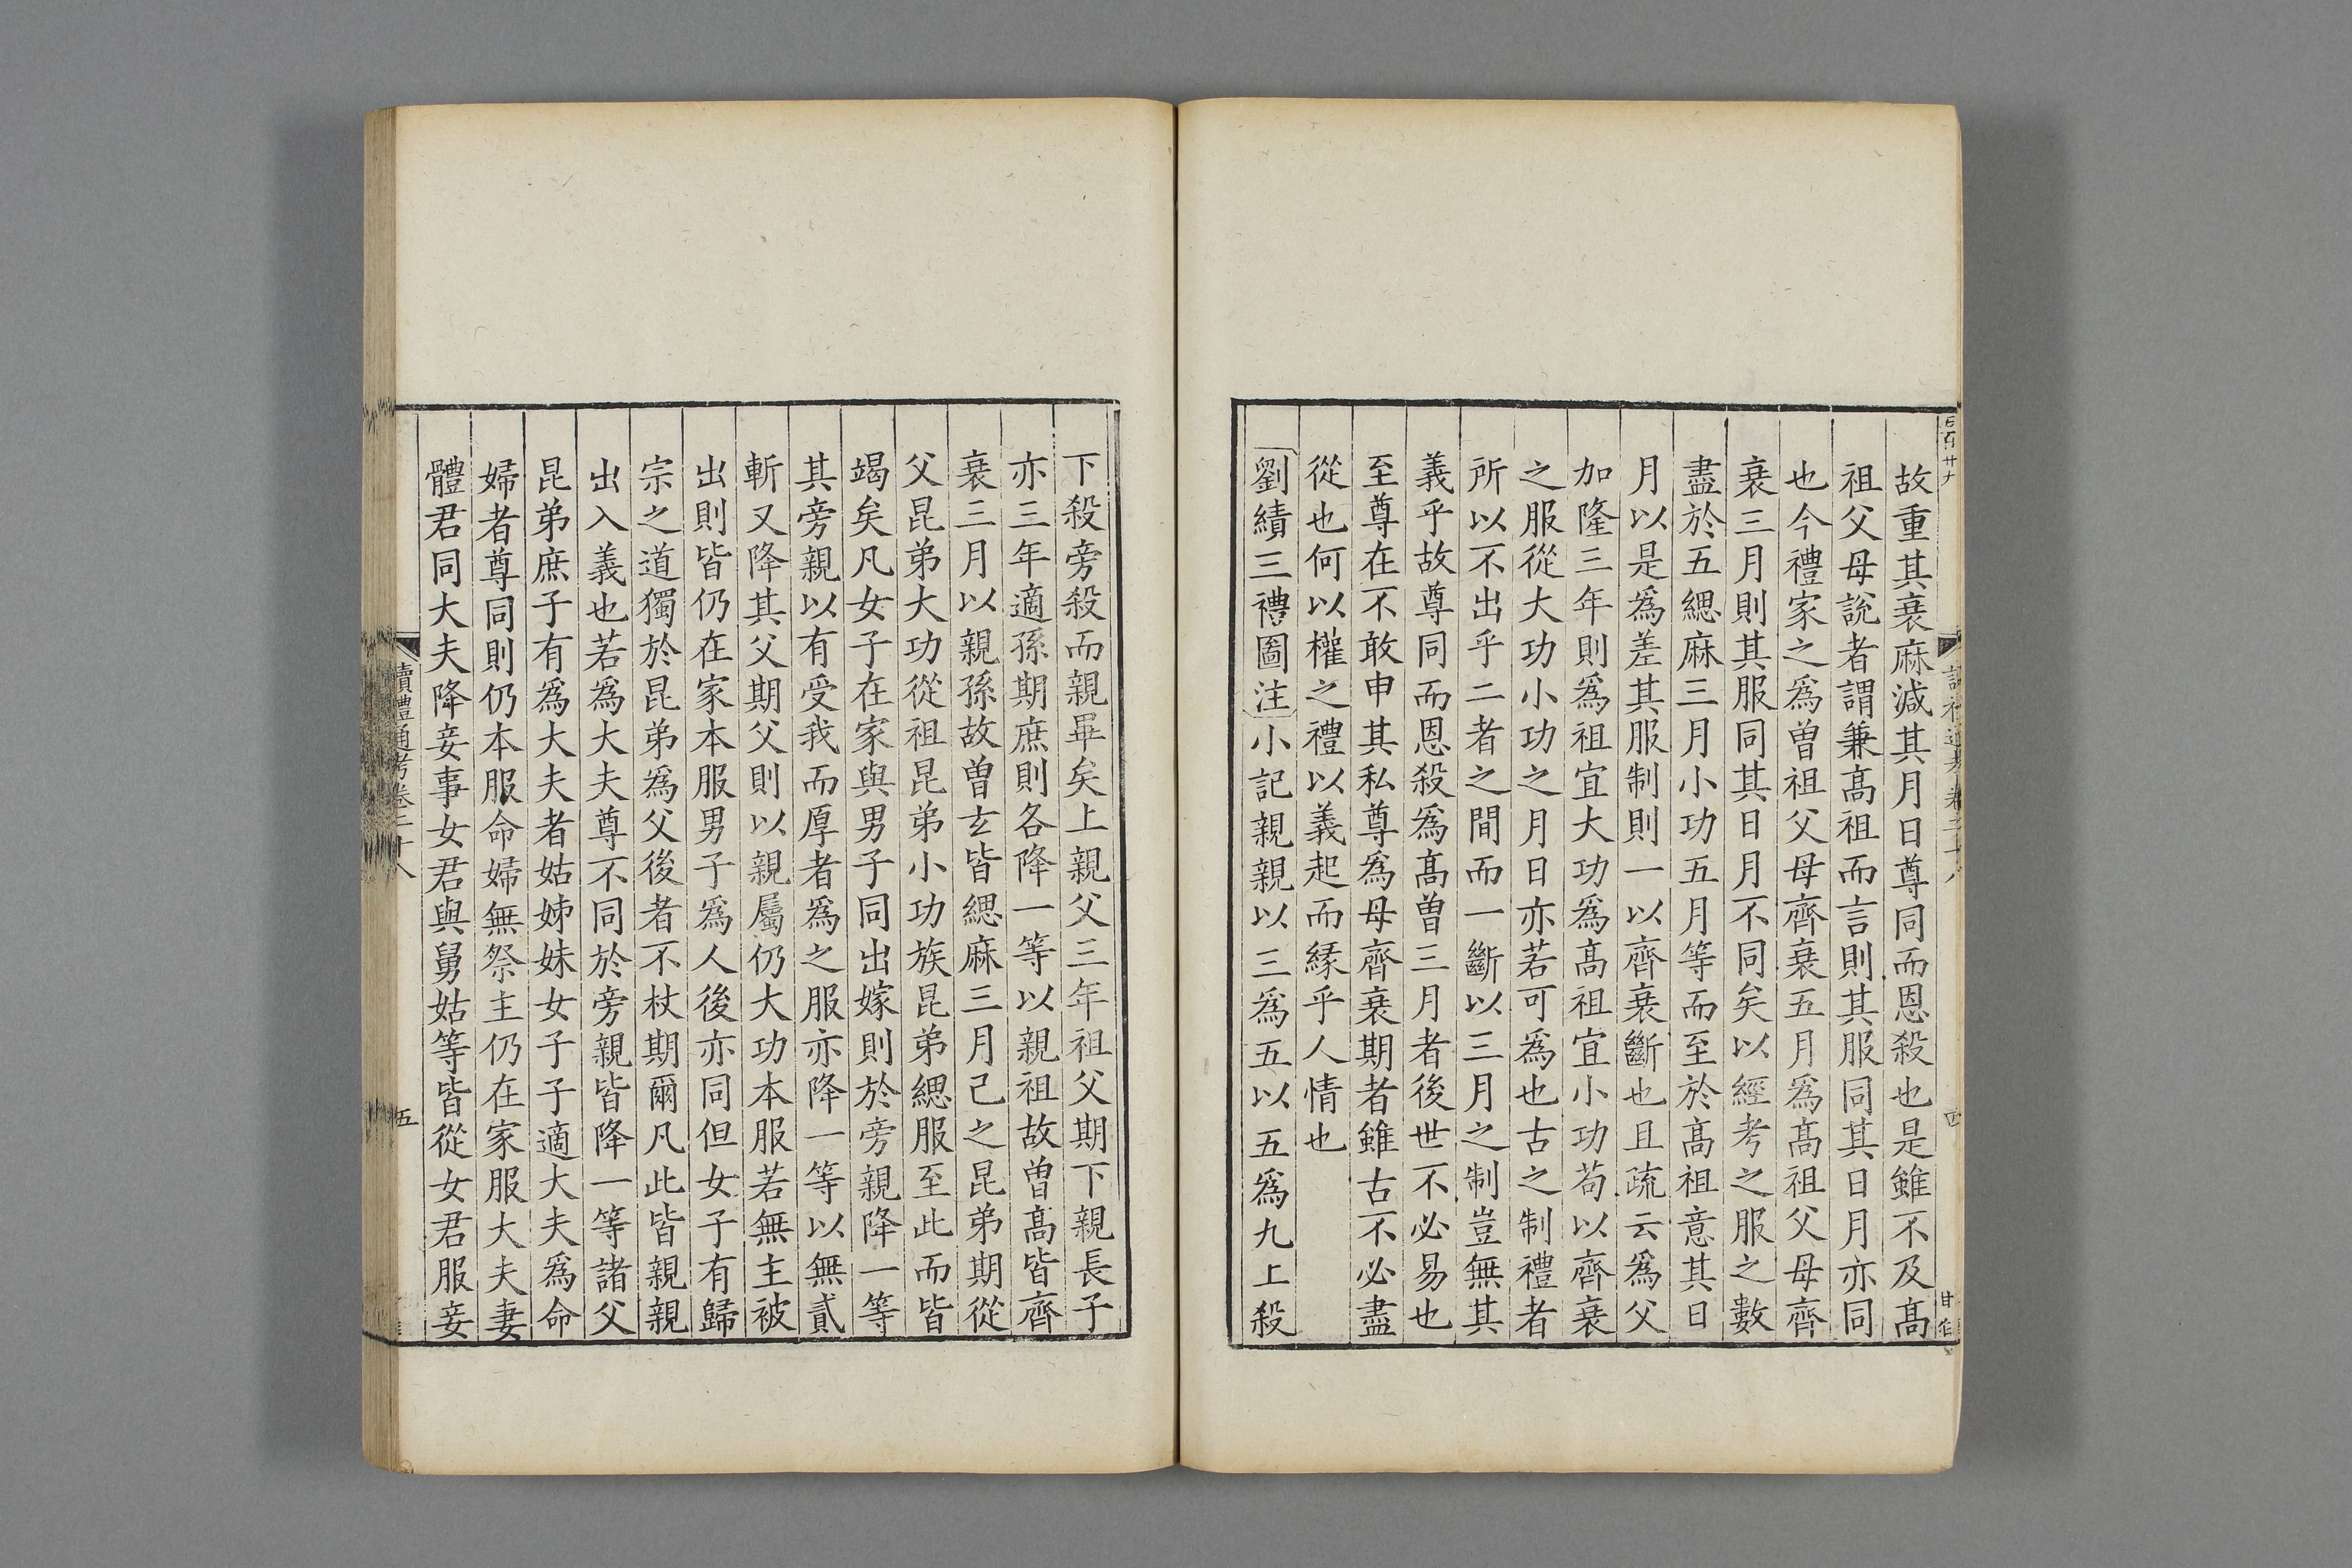 故重其衰麻減其月日尊同而恩殺也是雖不及髙
祖父母說者謂兼髙祖而言則其服同其日月亦同
也今禮家之爲曽祖父母齊衰五月爲髙祖父母齊
衰三月則其服同其日月不同矣以經考之服之數
盡於五緦麻三月小功五月等而至於髙祖意其日
月以是爲差其服制則一以齊衰斷也且疏云爲父
加隆三年則爲祖宜大功爲髙祖宜小功苟以齊衰
之服從大功小功之月日亦若可爲也古之制禮者
所以不出乎二者之間而一斷以三月之制豈無其
義乎故尊同而恩殺爲髙曽三月者後世不必易也
至尊在不敢申其私尊爲母齊衰期者雖古不必盡
從也何以權之禮以義起而緣乎人情也
劉績三禮圖注小記親親以三爲五以五爲九上殺
四
下殺旁殺而親畢矣上親父三年祖父期下親長子
亦三年適孫期庶則各降一等以親祖故曽髙皆齊
衰三月以親孫故曽玄皆緦麻三月己之昆弟期從
父昆弟大功從祖昆弟小功族昆弟緦服至此而皆
竭矣凡女子在家與男子同出嫁則於旁親降一等
其旁親以有受我而厚者爲之服亦降一等以無貳
斬又降其父期父則以親屬仍大功本服若無主被
出則皆仍在家本服男子爲人後亦同但女子有歸
宗之道獨於昆弟爲父後者不杖期爾凡此皆親親
出入義也若爲大夫尊不同於旁親皆降一等諸父
昆弟庶子有爲大夫者姑姊妹女子子適大夫爲命
婦者尊同則仍本服命婦無祭主仍在家服大夫妻
體君同大夫降妾事女君與舅姑等皆從女君服妾
讀禮通考卷二十八
五